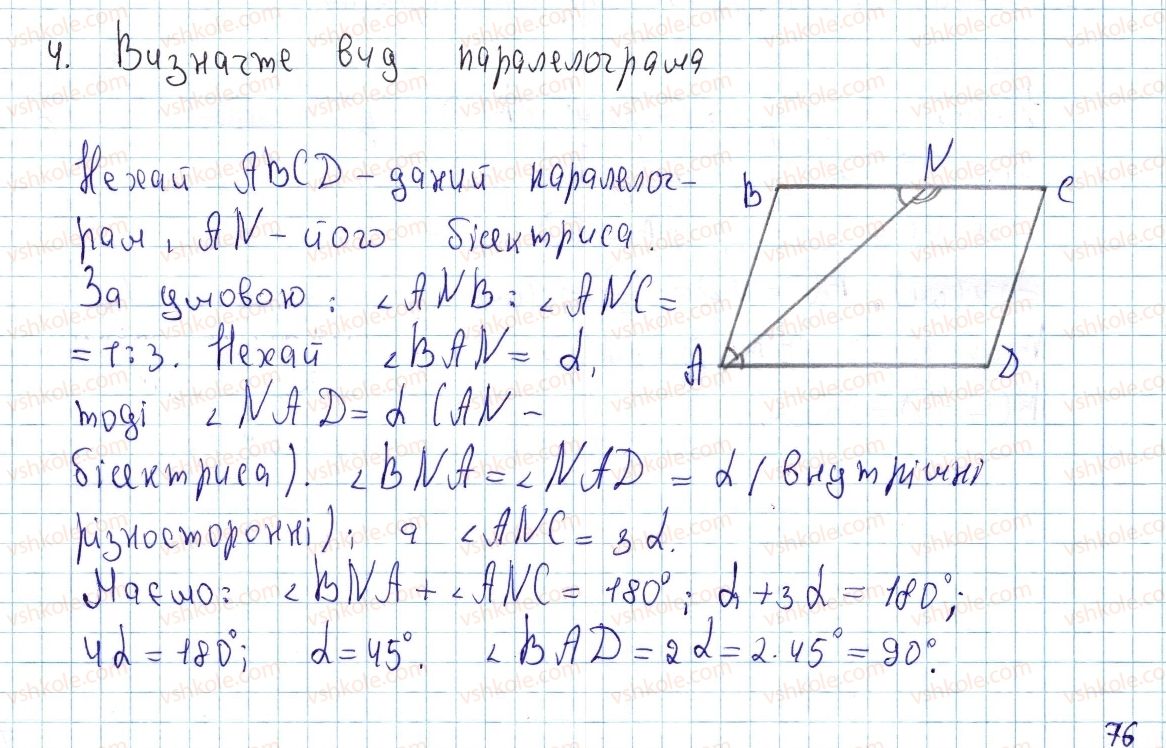 4. Визначте вид паралелограма
Нехай ABCD – даний паралелог-
рам, AN – його бісектриса.
За умовою: ∠ANB : ∠ANC =
= 1:3. Нехай ∠BAN = α,
тоді ∠NAD = α (AN –
бісектриса). ∠BNA = ∠NAD = α (внутрішні
різносторонні); а ∠ANC = 3α.
Маємо: ∠BNA + ∠ANC = 180°; α + 3α = 180°;
4α = 180°; α = 45°. ∠BAD = 2α = 2·45° = 90°.
B N C
A D
76
vshkole.com